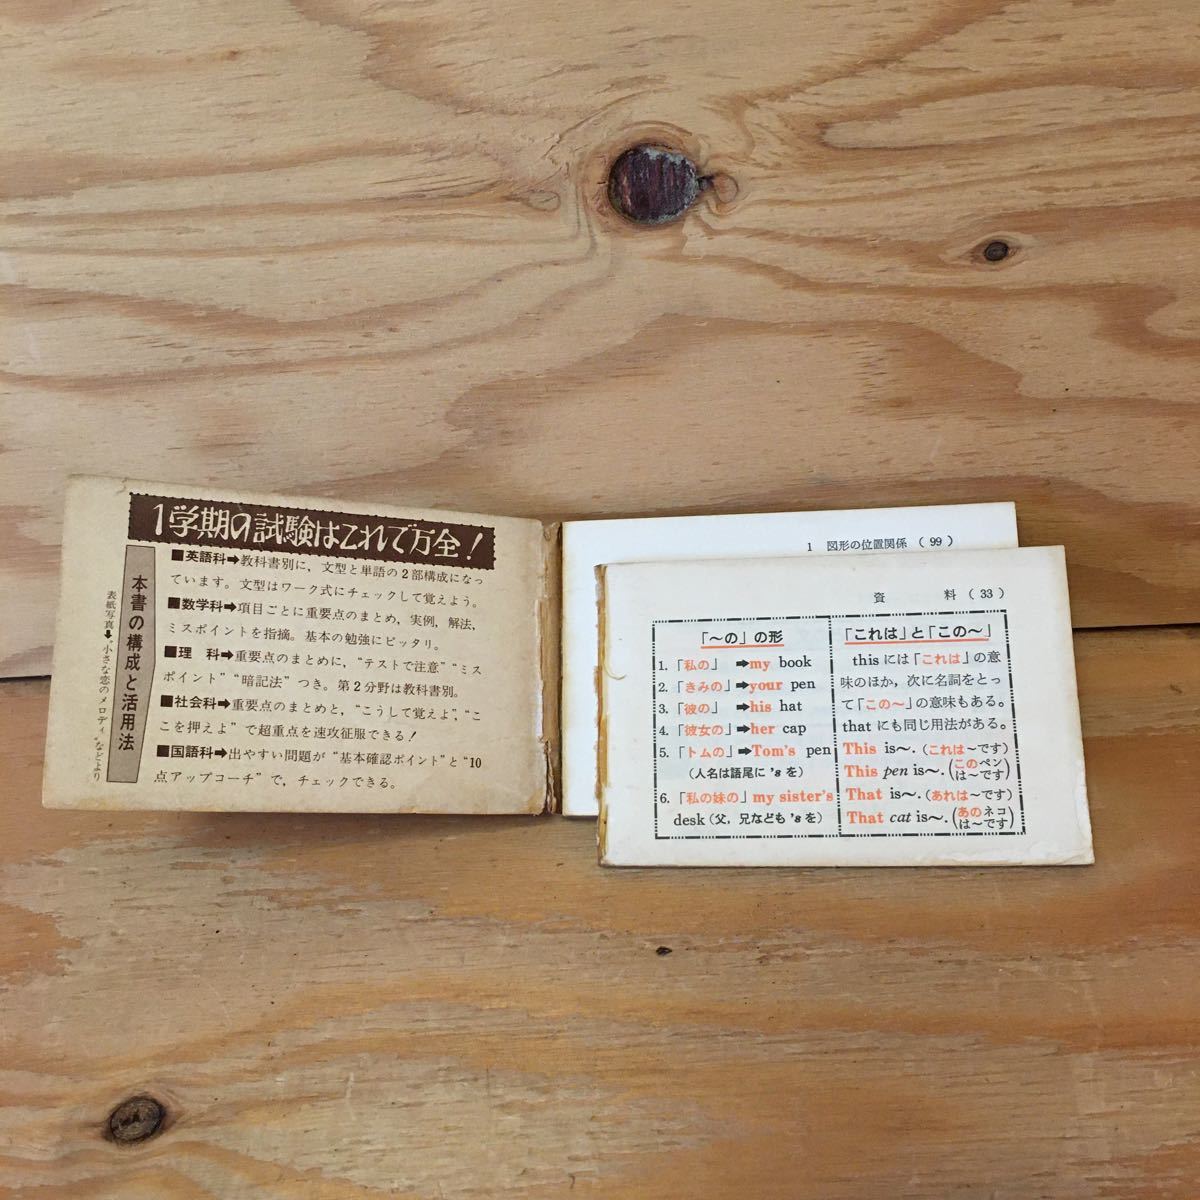 1学期の試験はこれで万全！
本書の構成と活用法
表紙写真➡“小さな恋のメロディ”などより
■英語科➡教科書別に，文型と単語の2部構成になっ
ています。文型はワーク式にチェックして覚えよう。
■数学科➡項目ごとに重要点のまとめ，実例，解法，
ミスポイントを指摘。基本の勉強にピッタリ。
■理　科➡重要点のまとめに，“テストで注意”“ミス
ポイント”“暗記法”つき。第2分野は教科書別。
■社会科➡重要点のまとめと，“こうして覚えよ”，“こ
こを押えよ”で超重点を速攻征服できる！
■国語科➡出やすい問題が“基本確認ポイント”と“10
点アップコーチ”で，チェックできる。
1　図形の位置関係（99）
資　料（33）
「～の」の形
1.「私の」➡my book
2.「きみの」➡your pen
3.「彼の」➡his hat
4.「彼女の」➡her cap
5.「トムの」➡Tom's pen
（人名は語尾に 's を）
6.「私の妹の」my sister's
desk（父，兄なども 's を）
「これは」と「この～」
this には「これは」の意
味のほか，次に名詞をとっ
て「この～」の意味もある。
that にも同じ用法がある。
This is～.（これは～です）
This pen is～.（このペンは～です）
That is～.（あれは～です）
That cat is～.（あのネコは～です）